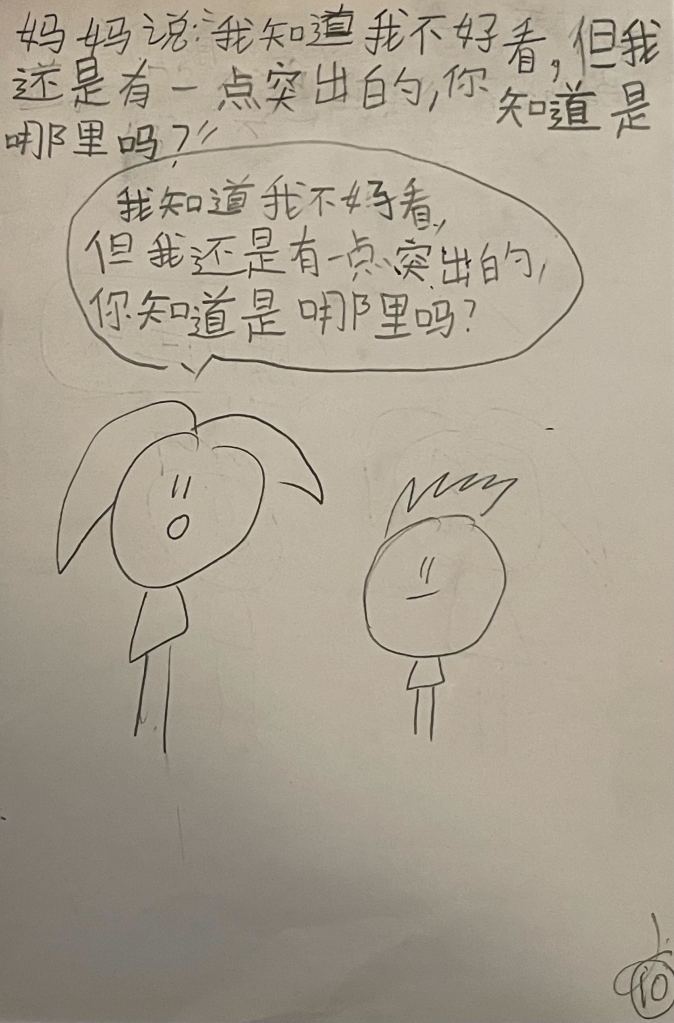 妈妈说:“我知道我不好看,但我
还是有一点突出的,你知道是
哪里吗?”
我知道我不好看,
但我还是有一点突出的,
你知道是哪里吗?
10